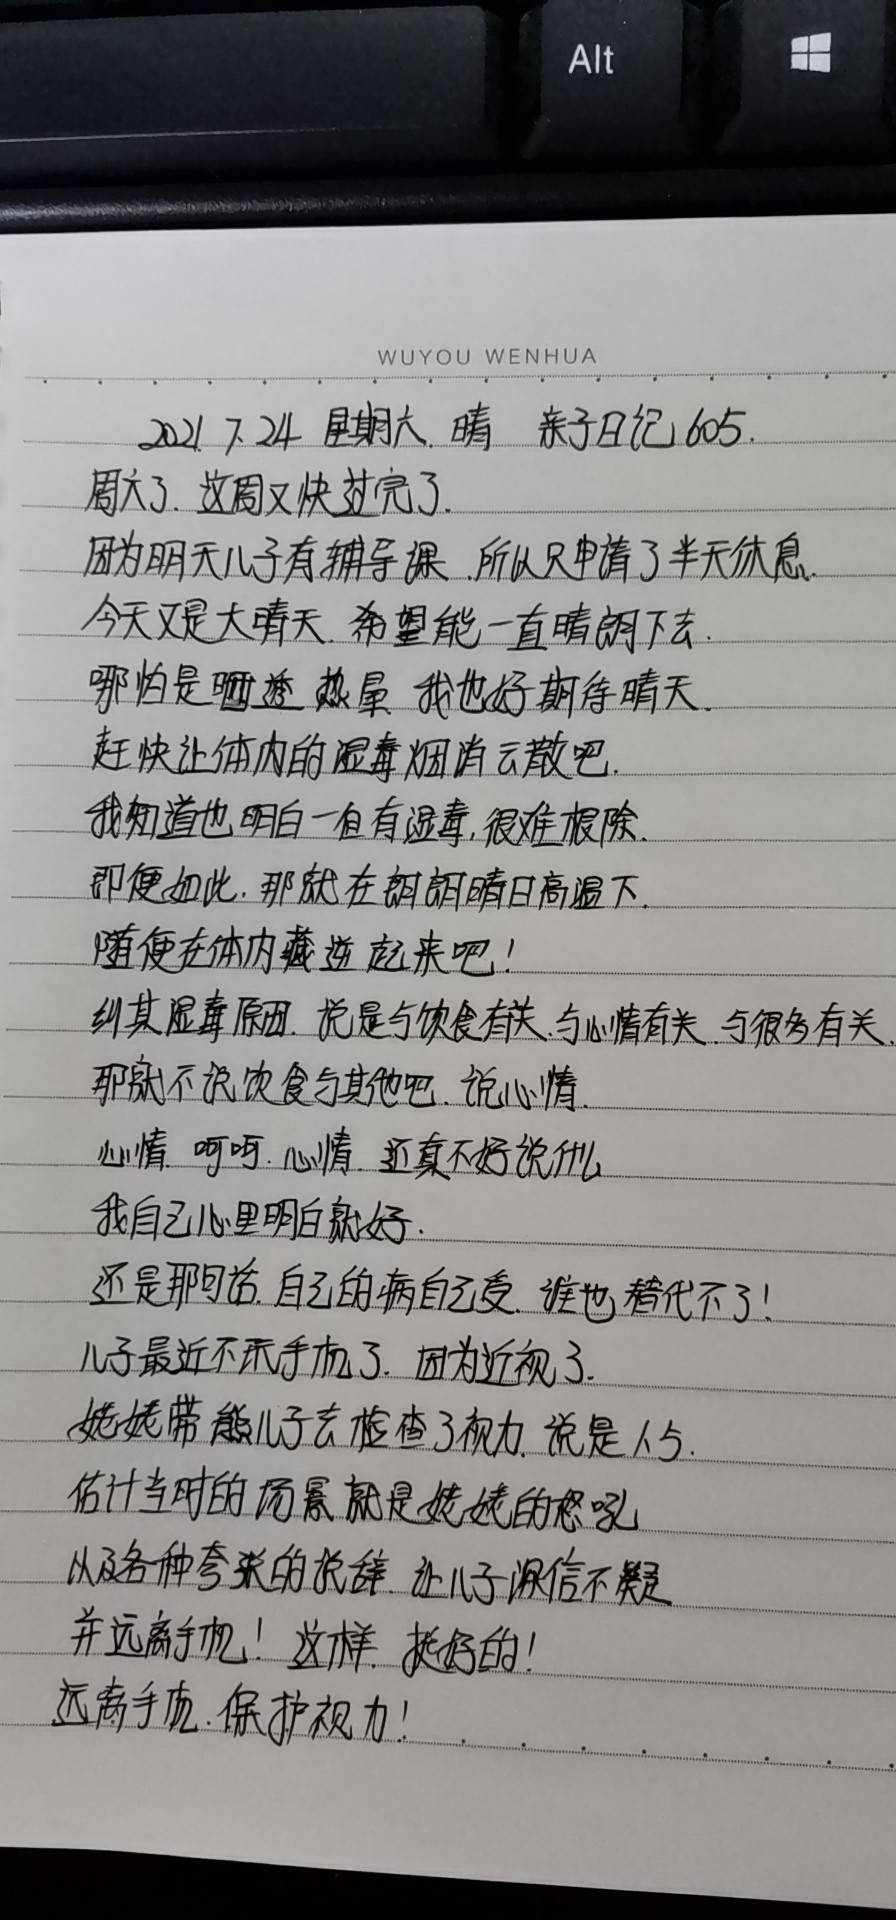 Alt
WUYOU WENHUA
2021.7.24 星期六.晴 亲子日记605.
周六了.这周又快过完了.
因为明天儿子有辅导课.所以只申请了半天休息.
今天又是大晴天.希望能一直晴朗下去.
哪怕是晒透 热晕.我也好期待晴天.
赶快让体内的湿毒烟消云散吧.
我知道也明白一旦有湿毒,很难根除.
即便如此.那就在朗朗晴日高温下.
随便在体内藏 起来吧!
纠其湿毒原因.说是与饮食有关.与心情有关.与很多有关.
那就不说饮食与其他吧.说心情.
心情.呵呵.心情.还真不好说什么
我自己心里明白就好.
还是那句话.自己的病自己受.谁也替代不了!
儿子最近不玩手机了.因为近视了.
姥姥带熊儿子去检查了视力.说是
估计当时的场景就是姥姥的怒吼
以及各种夸张的说辞.让儿子深信不疑
并远离手机!这样.挺好的!
远离手机.保护视力!